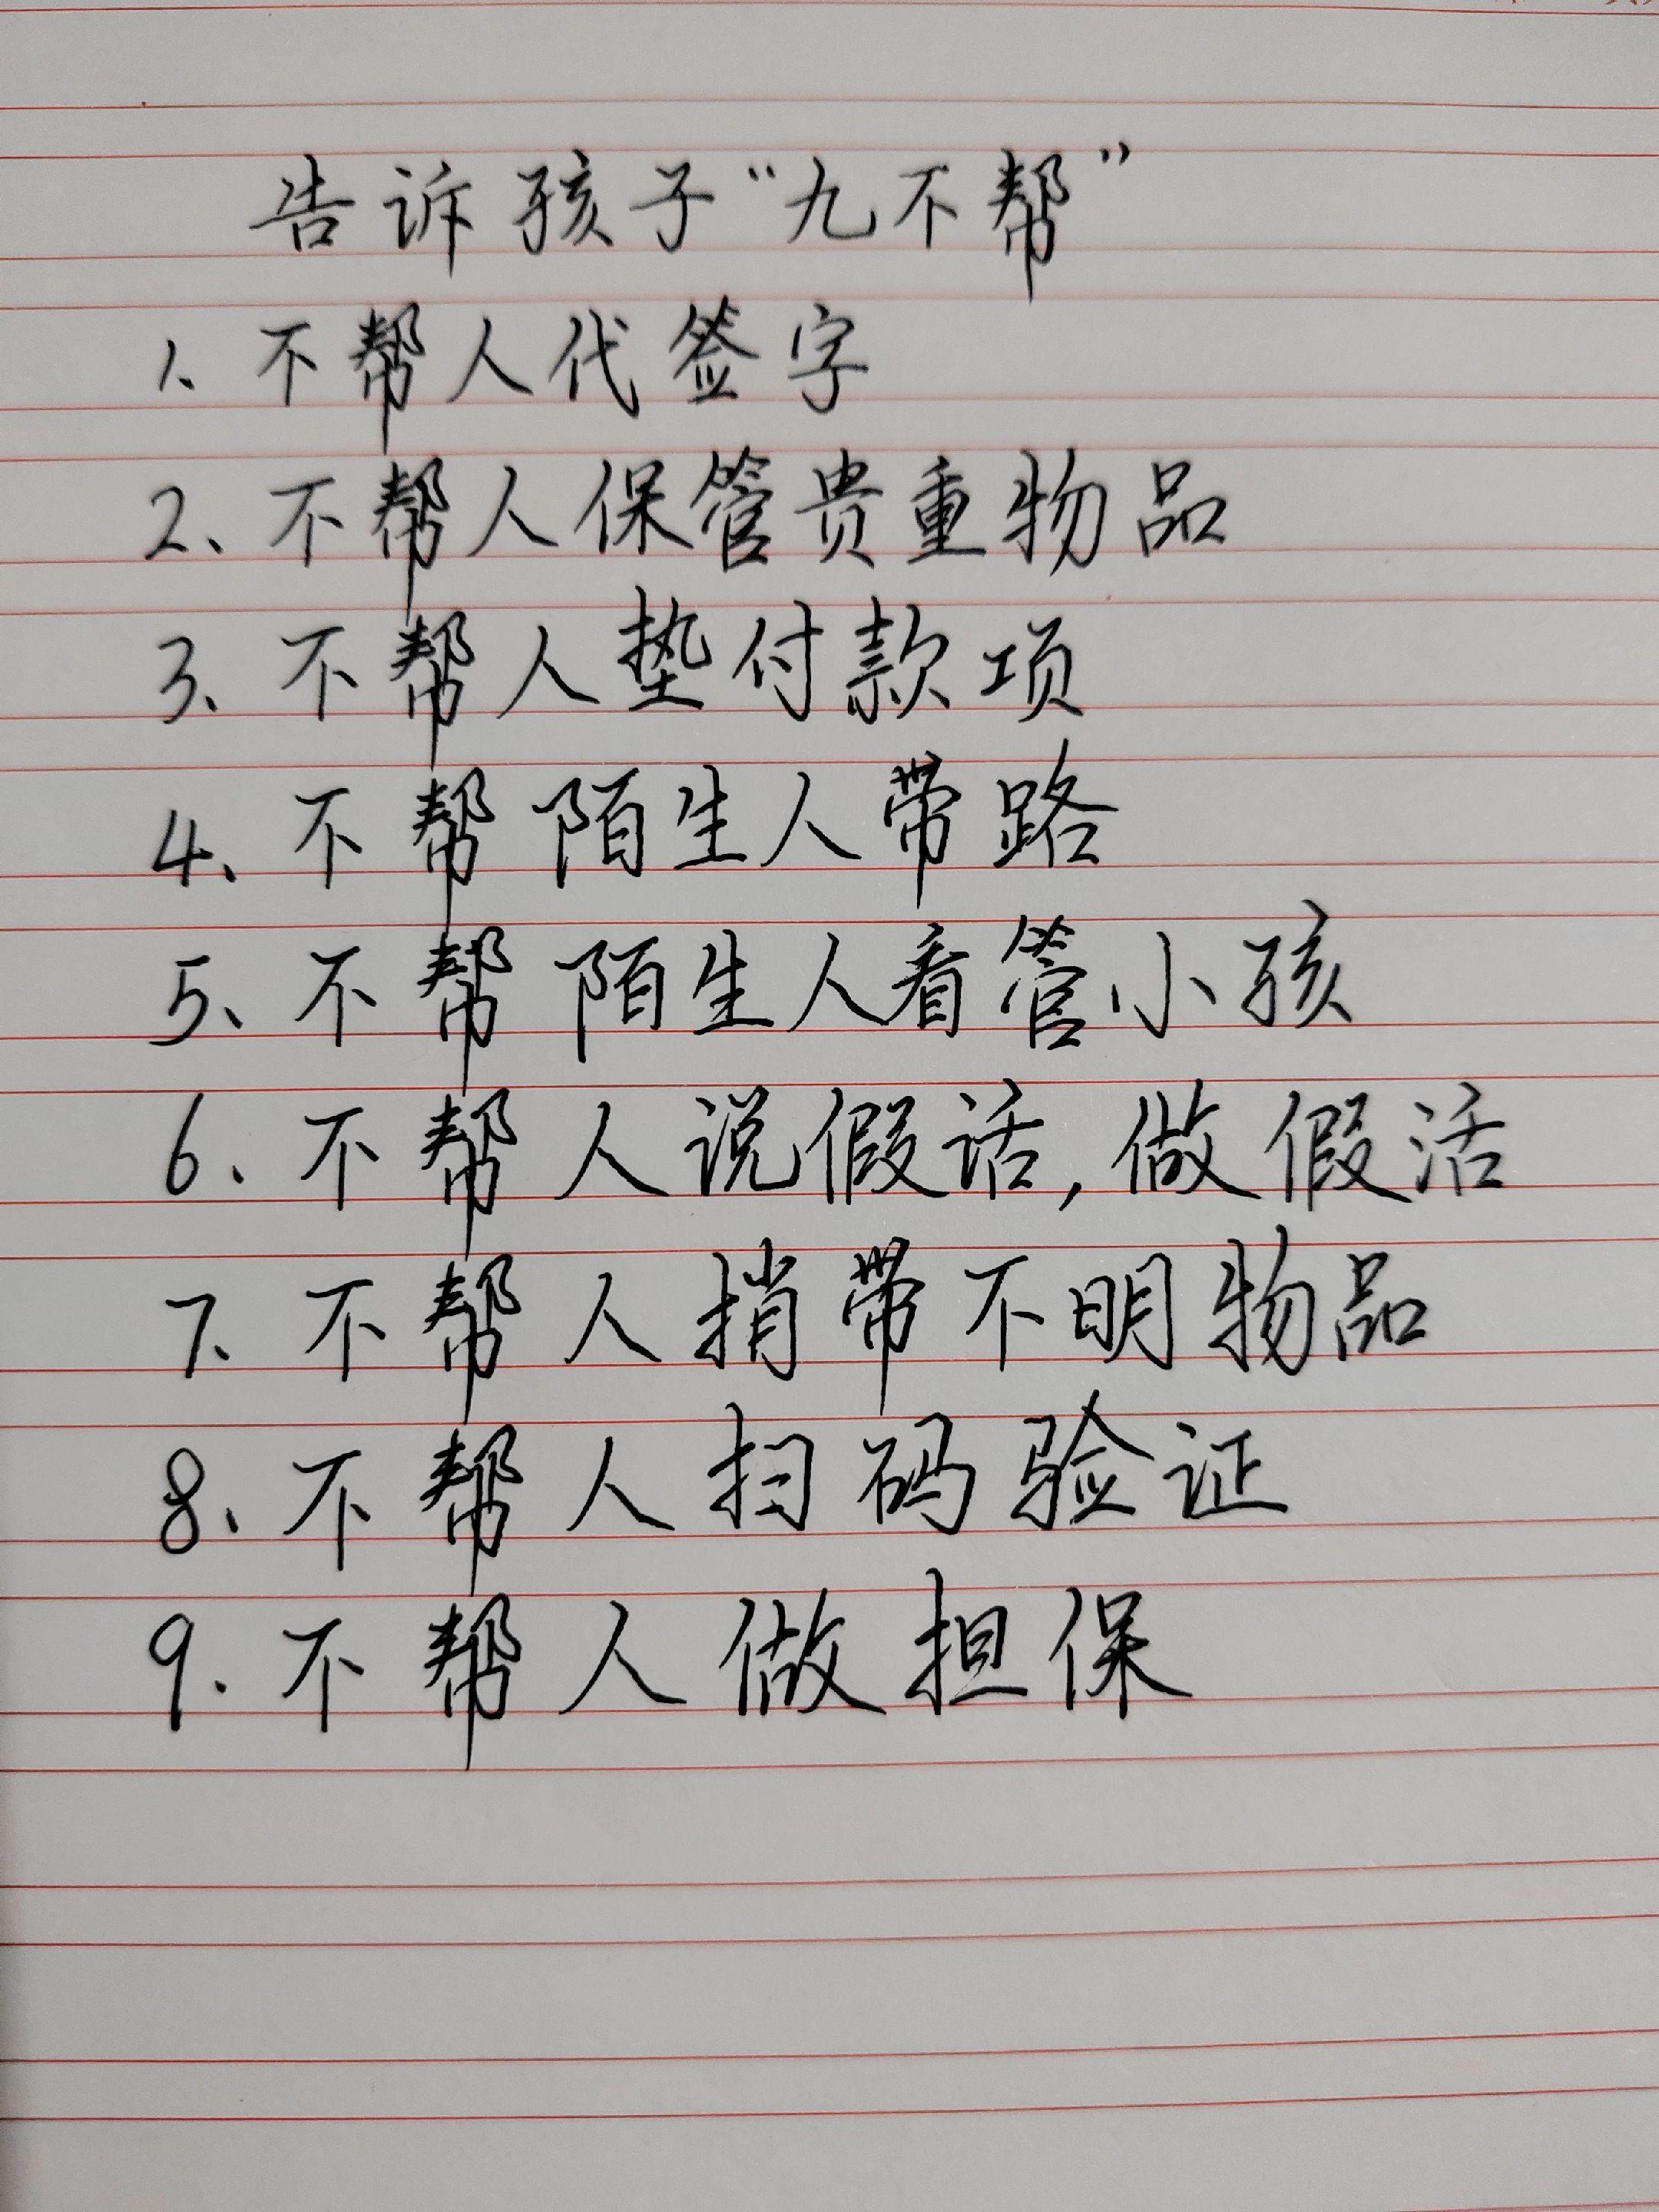 告诉孩子“九不帮”
1、不帮人代签字
2、不帮人保管贵重物品
3、不帮人垫付款项
4、不帮陌生人带路
5、不帮陌生人看管小孩
6、不帮人说假话,做假活
7、不帮人捎带不明物品
8、不帮人扫码验证
9、不帮人做担保